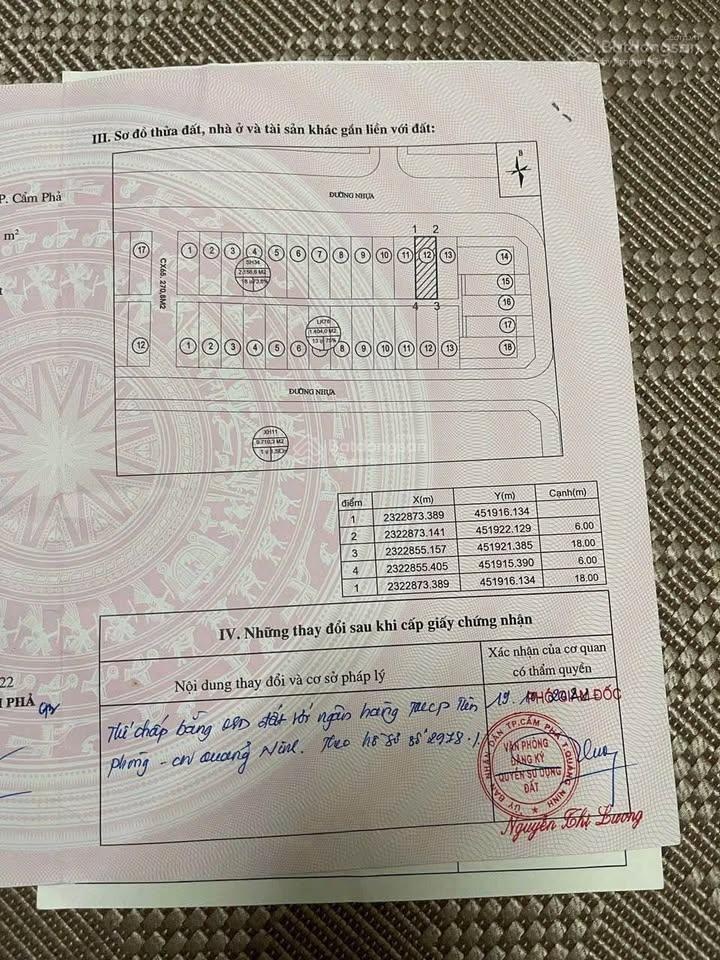 Batdongsan
by PropertyGuru
III. Sơ đồ thửa đất, nhà ở và tài sản khác gắn liền với đất:
P. Cẩm Phả
m²
B
ĐƯỜNG NHỰA
1 2
17 1 2 3 4 5 6 7 8 9 10 11 12 13 14
SH34
CX65. 270,8M2
15
16
4 3
LK76
1.404,0 M2
17
12 1 2 3 4 5 6 8 9 10 11 12 13 18
ĐƯỜNG NHỰA
XH11
điểm X(m) Y(m) Cạnh(m)
1 2322873.389 451916.134
6.00
2 2322873.141 451922.129
18.00
3 2322855.157 451921.385
6.00
4 2322855.405 451915.390
18.00
1 2322873.389 451916.134
IV. Những thay đổi sau khi cấp giấy chứng nhận
Nội dung thay đổi và cơ sở pháp lý
Xác nhận của cơ quan
có thẩm quyền
22
PHẢ
Thế chấp bằng đất với ngân hàng TMCP Tiên
phong - CN Quảng Ninh. Theo hồ sơ số 2978.
PHÓ GIÁM ĐỐC
ỦY BAN NHÂN DÂN TP.CẨM PHẢ T.QUẢNG NINH
VĂN PHÒNG
ĐĂNG KÝ
QUYỀN SỬ DỤNG
ĐẤT
Nguyễn Thị Lương